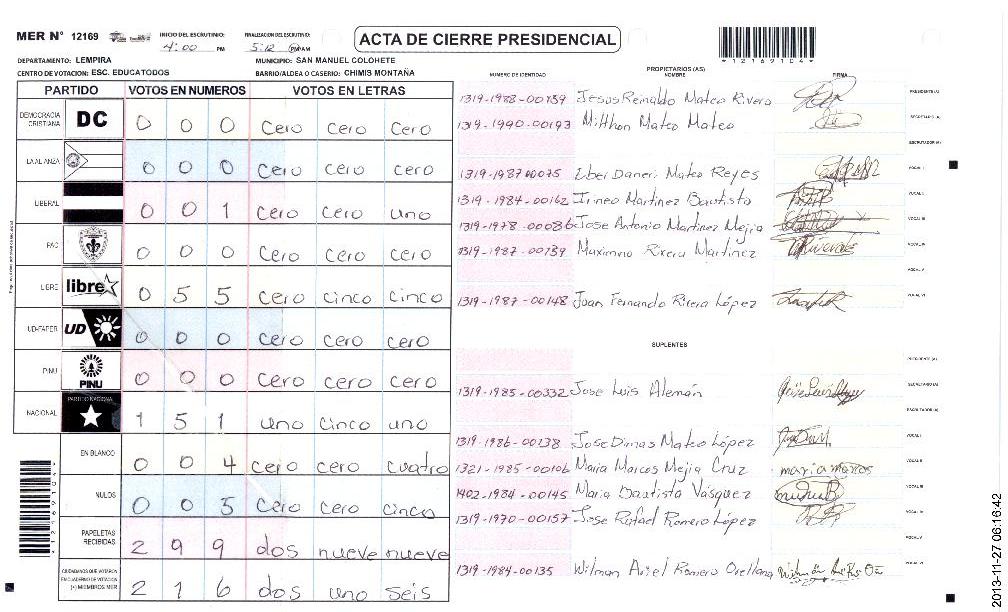 MER N° 12169
INICIO DEL ESCRUTINIO: 4:00 PM
FINALIZACION DEL ESCRUTINIO: 5:12 PM AM
ACTA DE CIERRE PRESIDENCIAL
*12169104*
DEPARTAMENTO: LEMPIRA
MUNICIPIO: SAN MANUEL COLOHETE
CENTRO DE VOTACION: ESC. EDUCATODOS
BARRIO/ALDEA O CASERIO: CHIMIS MONTAÑA
PARTIDO VOTOS EN NUMEROS VOTOS EN LETRAS
DEMOCRACIA CRISTIANA DC 0 0 0 Cero Cero Cero
LA ALIANZA 0 0 0 Cero Cero Cero
LIBERAL 0 0 1 Cero Cero uno
PAC 0 0 0 Cero Cero Cero
LIBRE libre 0 5 5 Cero cinco cinco
UD-FAPER UD 0 0 0 Cero Cero Cero
PINU PINU 0 0 0 Cero Cero Cero
NACIONAL PARTIDO NACIONAL 1 5 1 uno cinco uno
EN BLANCO 0 0 4 Cero cero cuatro
NULOS 0 0 5 Cero Cero cinco
PAPELETAS RECIBIDAS 2 9 9 dos nueve nueve
CIUDADANOS QUE VOTARON EN CUADERNO DE VOTACION (+) MIEMBROS MER 2 1 6 dos uno seis
NUMERO DE IDENTIDAD PROPIETARIOS (AS) NOMBRE FIRMA
1319-1988-00739 Jesus Reinaldo Mateo Rivera PRESIDENTE (A)
1319-1990-00193 Milthon Mateo Mateo SECRETARIO (A)
ESCRUTADOR (A)
1319-1987-00075 Eber Daneri Mateo Reyes VOCAL I
1319-1984-00162 Irineo Martinez Bautista VOCAL II
1319-1978-00086 Jose Antonio Martinez Mejia VOCAL III
1319-1987-00739 Maximino Rivera Martinez VOCAL IV
VOCAL V
1319-1987-00148 Juan Fernando Rivera López VOCAL VI
SUPLENTES
PRESIDENTE (A)
1319-1985-00332 Jose Luis Alemán SECRETARIO (A)
ESCRUTADOR (A)
1319-1986-00138 Jose Dimas Mateo López VOCAL I
1321-1985-00106 Maria Marcos Mejia Cruz maria marcos VOCAL II
1402-1984-00145 Maria Bautista Vásquez VOCAL III
1319-1970-00157 Jose Rafael Romero López VOCAL IV
VOCAL V
1319-1984-00135 Wilman Ariel Romero Orellana VOCAL VI
2013-11-27 06:16:42